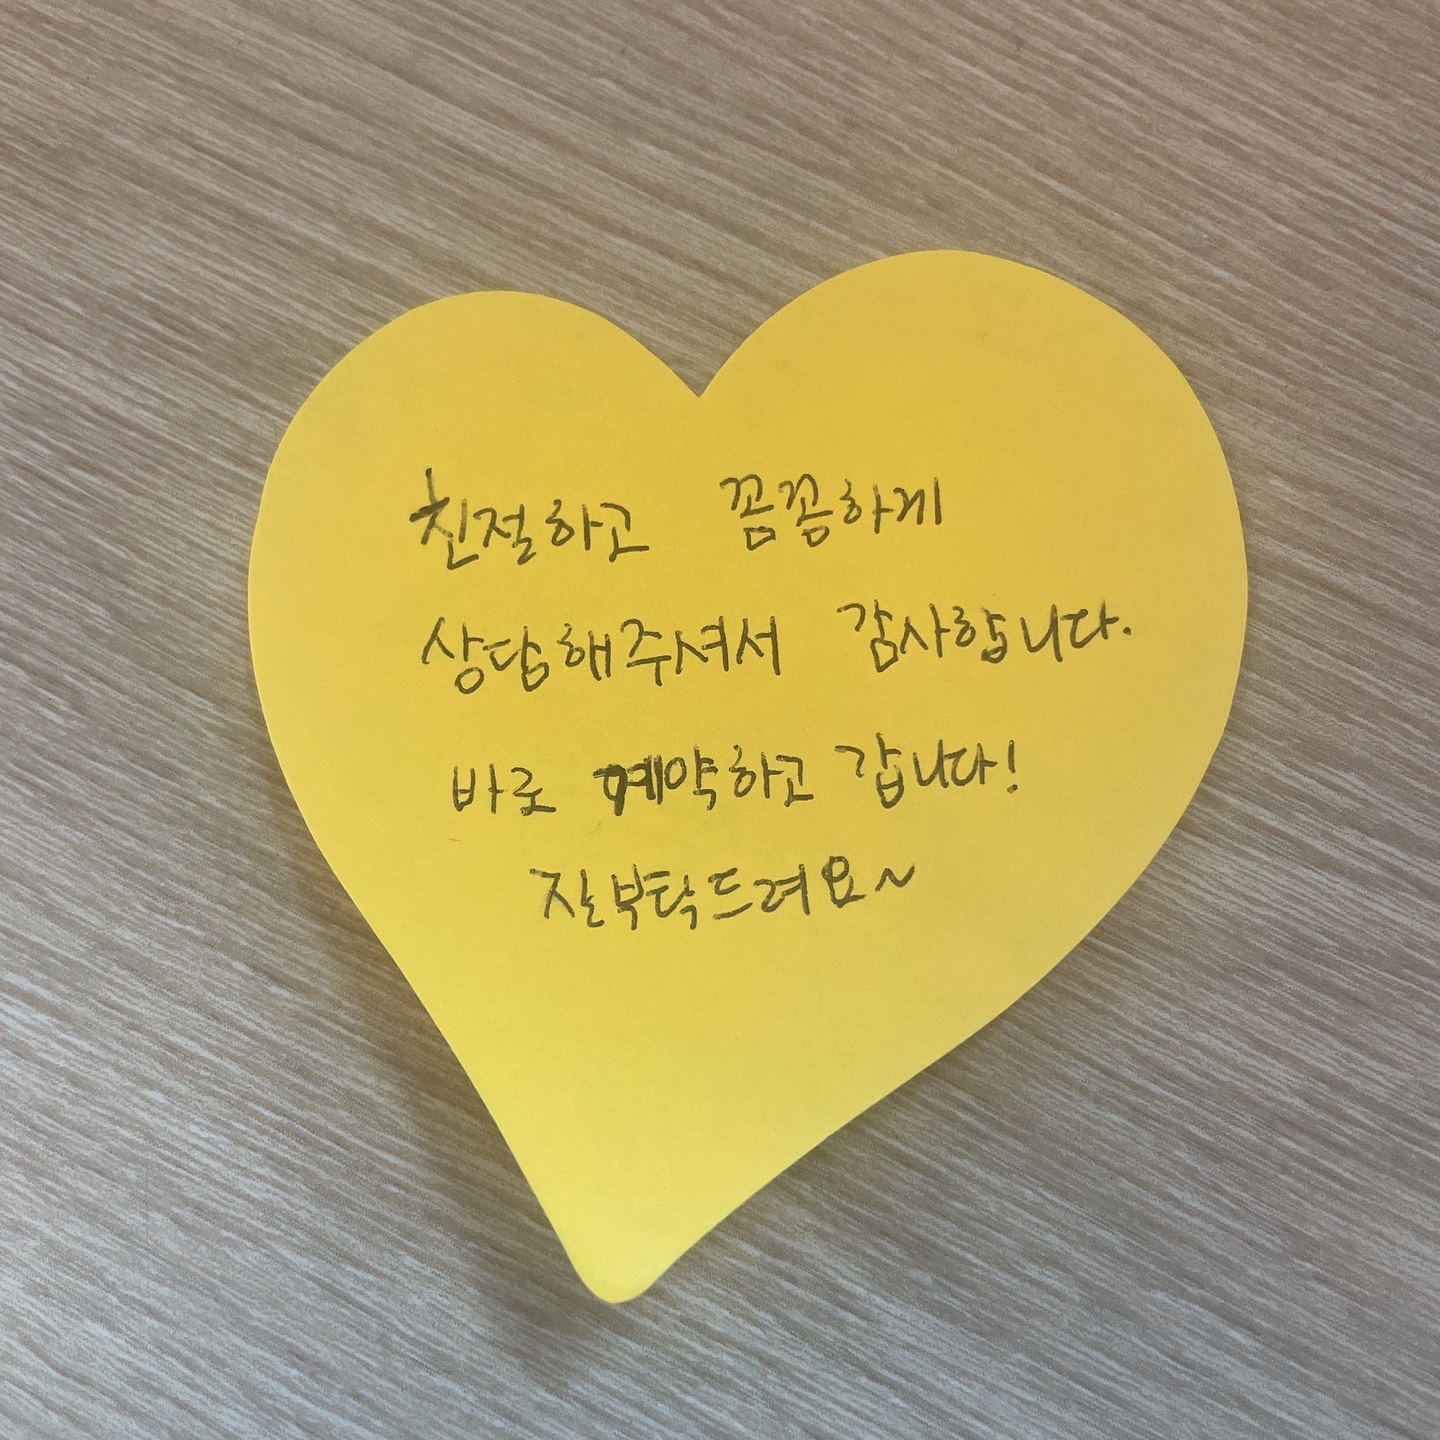 친절하고 꼼꼼하게
상담해주셔서 감사합니다.
바로 예약하고 갑니다!
잘부탁드려요~